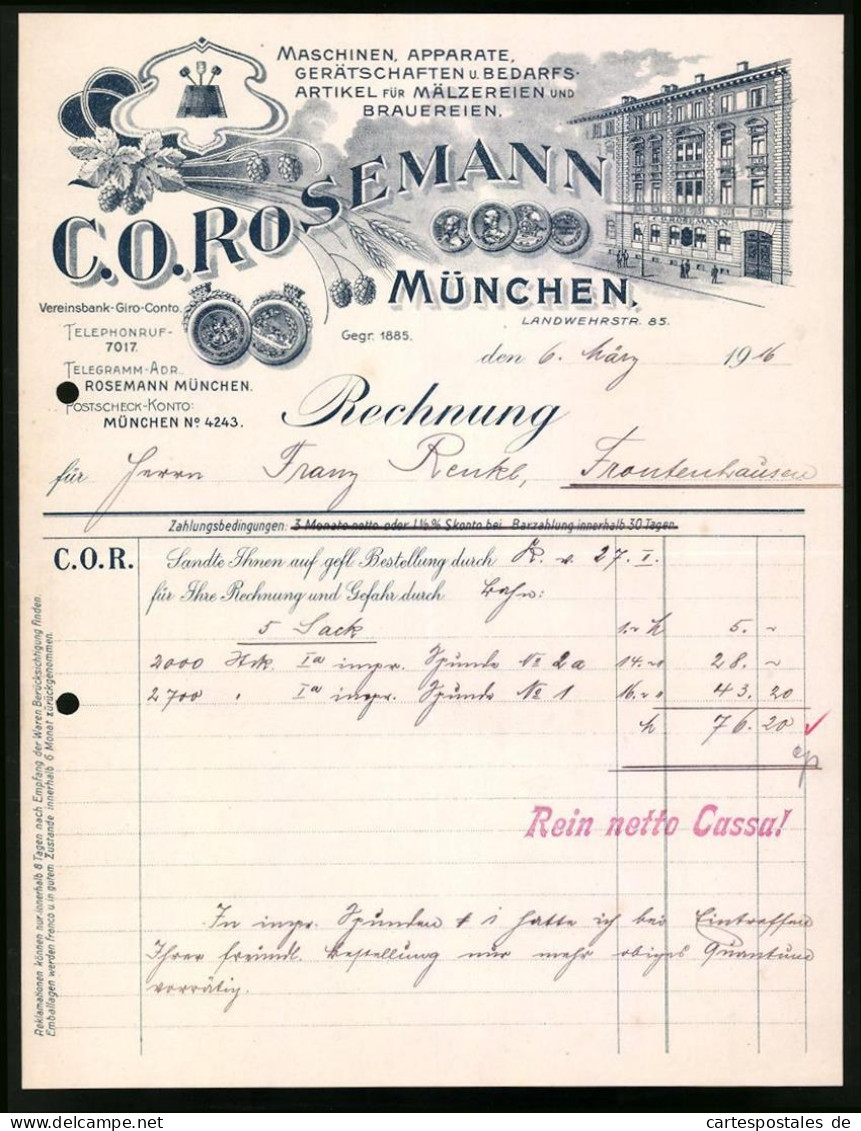 MASCHINEN, APPARATE,
GERÄTSCHAFTEN U. BEDARFS-
ARTIKEL FÜR MÄLZEREIEN UND
BRAUEREIEN.
C.O. ROSEMANN
MÜNCHEN.
LANDWEHRSTR. 85.
Vereinsbank-Giro-Conto.
TELEPHONRUF-
7017.
Gegr. 1885.
TELEGRAMM-ADR.
ROSEMANN MÜNCHEN.
POSTSCHECK-KONTO:
MÜNCHEN No 4243.
den 6. März 1916
Rechnung
für Herrn Franz Renkl, Frontenhausen
Zahlungsbedingungen: 3 Monate netto oder 1½% Skonto bei Barzahlung innerhalb 30 Tagen
C.O.R. Sandte Ihnen auf gefl Bestellung durch K. v. 27. I.
für Ihre Rechnung und Gefahr durch Bahn:
5 Sack 1.- M 5. -
2000 Stck. Ia impr. Spunde No 2a 14.- 28. -
2700 " Ia impr. Spunde No 1 16.- 43. 20
M 76. 20
Rein netto Cassa!
In impr. Spunden # 1 hatte ich bei Eintreffen
Ihrer freundl. Bestellung nur mehr obiges Quantum
vorrätig.
Reklamationen können nur innerhalb 8 Tagen nach Empfang der Waren Berücksichtigung finden.
Emballagen werden franco u. in gutem Zustande innerhalb 6 Monat zurückgenommen.
www.cartespostales.de